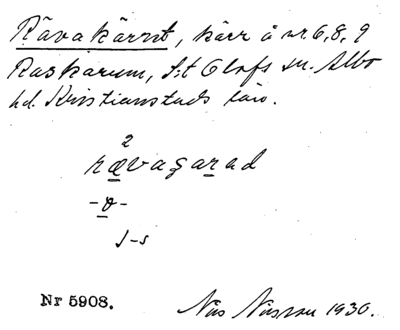 Rävakärret, kärr å nr. 6, 8, 9
Raskarum, S:t Olofs sn. Albo
hd. Kristianstads län.
2
rævagarad
-ɒ-
J-s
Nr 5908.
Nils 1930.